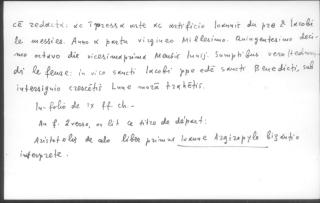 cē redacta: ac īpressa arte ac artificio Ioannis du pre & Iacobi
le messier. Anno a partu virgineo Millesimo. quingentesimo deci-
mo octavo die vicesimaprima Mensis Iunij. Sumptibus vero
de la fense: in vico sancti Iacobi ppe edē sancti Benedicti, sub
intersignio crescētis Lune morā trahētis.
In-folio de ix ff. ch.
Au f. 2 verso, on lit ce titre de départ:
Aristotelis de celo liber primus Ioanne Argiropylo Bisantio
interprete.